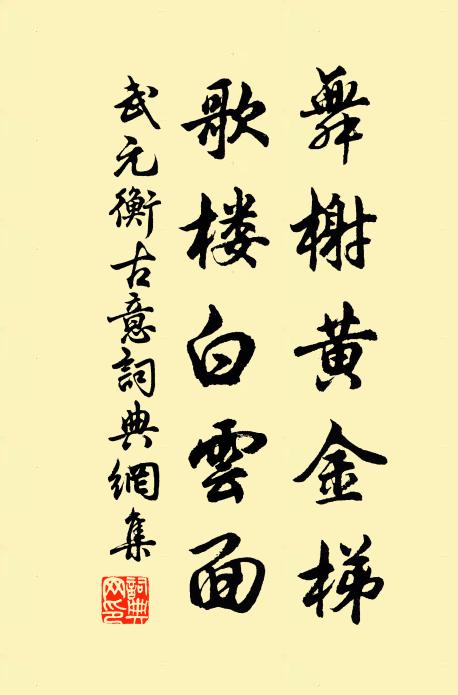 舞榭黄金梯
歌楼白雲面
武元衡古意詞典網集
詞典網印